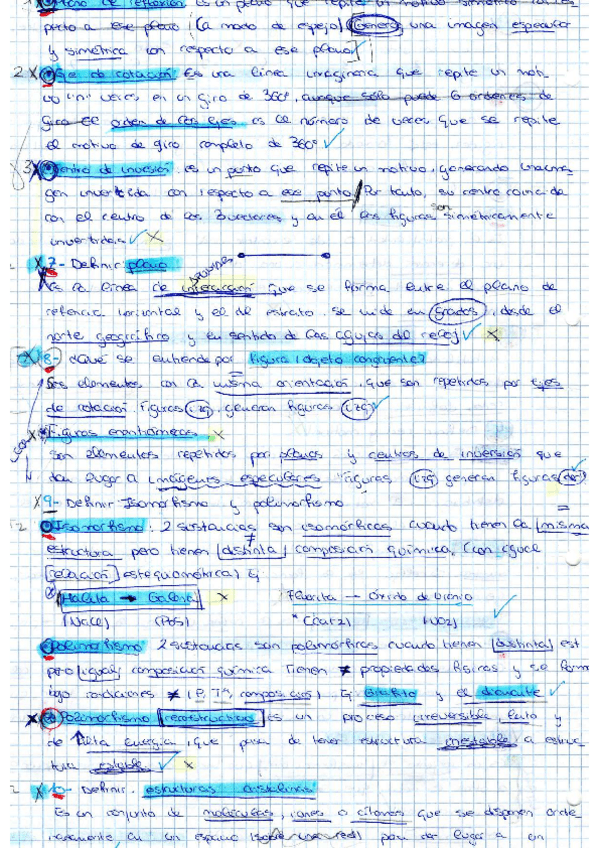 Plano de reflexión: es un plano que repite un motivo simétrico con res-
pecto a ese plano (a modo de espejo) genera una imagen especular
y simétrica con respecto a ese plano
2 X Eje de rotación Es una línea imaginaria que repite un moti
vo "n" veces en un giro de 360º, aunque sólo puede 6 ordenes de
giro el orden de los ejes es el número de veces que se repite
el motivo de giro completo de 360º
3 X Centro de inversión: es un punto que repite un motivo, generando una ima
gen invertida con respecto a ese punto. Por tanto, su centro coincide
con el centro de los 3 vectores y en él las figuras son simétricamente
invertidas X
X 7- Definir plano
Es la línea de intersección que se forma entre el plano de
referencia horizontal y el del estrato. se mide en grados, desde el
norte geográfico y en sentido de las agujas del reloj X
8- ¿Qué se entiende por figura / objeto congruente?
Son elementos con la misma orientación, que son repetidos por ejes
de rotación. Figuras izq. generan figuras izq
X Figuras enantiomorfas X
son elementos repetidos por planos y centros de inversión que
dan lugar a imágenes especulares "Figuras izq generan figuras der"
X 9- Definir Isomorfismo y polimorfismo
Isomorfismo: 2 sustancias son isomórficas cuando tienen la misma
estructura pero tienen distinta composición química, (con igual
relación estequiométrica) Ej
Halita → Galena X Fluorita → Óxido de Uranio
(NaCl) (PbS) (CaF2) (UO2)
Polimorfismo: 2 sustancias son polimórficas cuando tienen distinta est
pero igual composición química Tienen ≠ propiedades físicas y se forma
bajo condiciones ≠ (P, Tª, composición). Ej Grafito y el diamante
X Polimorfismo reconstructivo es un proceso irreversible, lento y
de ↑ alta energía, que pasa de tener estructura inestable a estruc
tura estable X
X 10- Definir: estructuras cristalinas
Es un conjunto de moléculas, iones o átomos que se disponen orde
nadamente en un espacio (sobre una red) para dar lugar a un